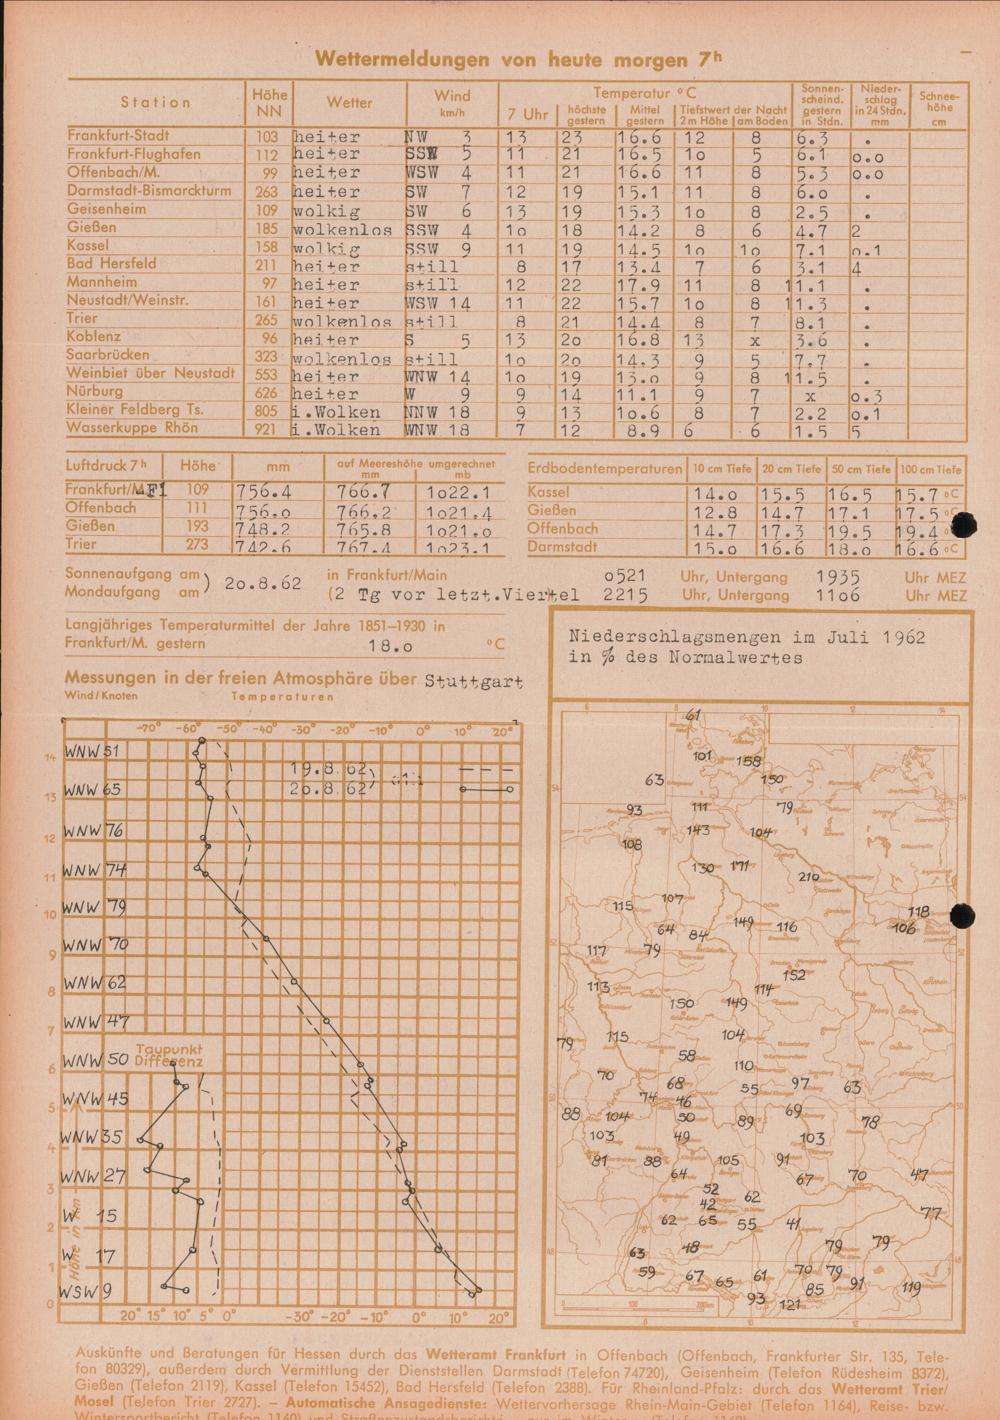 Wettermeldungen von heute morgen 7h
Station Höhe NN Wetter Wind km/h Temperatur °C Sonnen-scheind. gestern in Stdn. Nieder-schlag in 24 Stdn. mm Schnee-höhe cm
7 Uhr höchste gestern Mittel gestern Tiefstwert der Nacht 2m Höhe am Boden
Frankfurt-Stadt 103 heiter NW 3 13 23 16.6 12 8 6.3 .
Frankfurt-Flughafen 112 heiter SSW 5 11 21 16.5 1o 5 6.1 o.o
Offenbach/M. 99 heiter WSW 4 11 21 16.6 11 8 5.3 o.o
Darmstadt-Bismarckturm 263 heiter SW 7 12 19 15.1 11 8 6.o .
Geisenheim 109 wolkig SW 6 13 19 15.3 1o 8 2.5 .
Gießen 185 wolkenlos SSW 4 1o 18 14.2 8 6 4.7 2
Kassel 158 wolkig SSW 9 11 19 14.5 1o 1o 7.1 o.1
Bad Hersfeld 211 heiter still 8 17 13.4 7 6 3.1 4
Mannheim 97 heiter still 12 22 17.9 11 8 11.1 .
Neustadt/Weinstr. 161 heiter WSW 14 11 22 15.7 1o 8 11.3 .
Trier 265 wolkenlos still 8 21 14.4 8 7 8.1 .
Koblenz 96 heiter S 5 13 2o 16.8 13 x 3.6 .
Saarbrücken 323 wolkenlos still 1o 2o 14.3 9 5 7.7 .
Weinbiet über Neustadt 553 heiter WNW 14 1o 19 13.o 9 8 11.5 .
Nürburg 626 heiter W 9 9 14 11.1 9 7 x o.3
Kleiner Feldberg Ts. 805 i.Wolken NNW 18 9 13 1o.6 8 7 2.2 o.1
Wasserkuppe Rhön 921 i.Wolken WNW 18 7 12 8.9 6 6 1.5 5
Luftdruck 7h Höhe mm auf Meereshöhe umgerechnet mm mb
Frankfurt/M.Fl 109 756.4 766.7 1o22.1
Offenbach 111 756.o 766.2 1o21.4
Gießen 193 748.2 765.8 1o21.o
Trier 273 742.6 767.4 1o23.1
Erdbodentemperaturen 10 cm Tiefe 20 cm Tiefe 50 cm Tiefe 100 cm Tiefe
Kassel 14.o 15.5 16.5 15.7 °C
Gießen 12.8 14.7 17.1 17.5 °C
Offenbach 14.7 17.3 19.5 19.4 °C
Darmstadt 15.o 16.6 18.o 16.6 °C
Sonnenaufgang am ) 2o.8.62 in Frankfurt/Main o521 Uhr, Untergang 1935 Uhr MEZ
Mondaufgang am (2 Tg vor letzt.Viertel 2215 Uhr, Untergang 11o6 Uhr MEZ
Langjähriges Temperaturmittel der Jahre 1851–1930 in
Frankfurt/M. gestern 18.o °C
Messungen in der freien Atmosphäre über Stuttgart
Wind/Knoten Temperaturen
-70° -60° -50° -40° -30° -20° -10° 0° 10° 20°
19.8.62
2o.8.62
14 WNW 51
13 WNW 65
12 WNW 76
11 WNW 74
10 WNW 79
9 WNW 70
8 WNW 62
7 WNW 47
6 WNW 50
Taupunkt
Differenz
5 WNW 45
4 WNW 35
3 WNW 27
2 W 15
1 W 17
0 WSW 9
Höhe in km
20° 15° 10° 5° 0° -30° -20° -10° 0° 10° 20°
Niederschlagsmengen im Juli 1962
in % des Normalwertes
61
101 158
63 150
93 111 79
108 143 104
130 171 210
115 107 118
64 84 149 116 106
117 79
113 152
150 149 114
79 115 104
58 110
70 68 55 97 63
74 46
88 104 50 89 69 78
103 49 103
81 88 105 91
64 67 70 47
52
42 62 77
62 65 55 41
63 48 79 79
59 67 65 61 70 79
93 121 85 91 119
Auskünfte und Beratungen für Hessen durch das Wetteramt Frankfurt in Offenbach (Offenbach, Frankfurter Str. 135, Tele-
fon 80329), außerdem durch Vermittlung der Dienststellen Darmstadt (Telefon 74720), Geisenheim (Telefon Rüdesheim 8372),
Gießen (Telefon 2119), Kassel (Telefon 15452), Bad Hersfeld (Telefon 2388). Für Rheinland-Pfalz: durch das Wetteramt Trier/
Mosel (Telefon Trier 2727). – Automatische Ansagedienste: Wettervorhersage Rhein-Main-Gebiet (Telefon 1164), Reise- bzw.
Wintersportbericht (Telefon 1160) und Straßenzustandsberichte